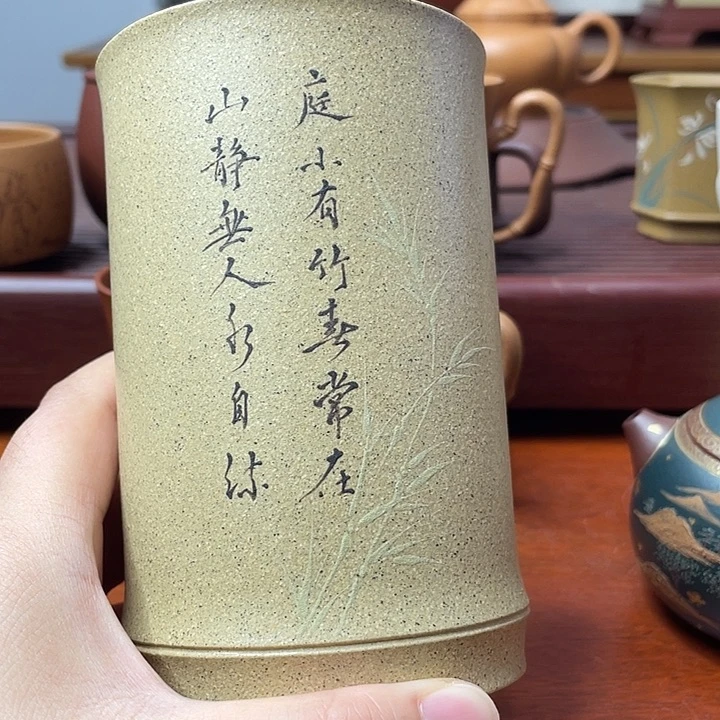 庭小有竹春常在
山靜無人水自流